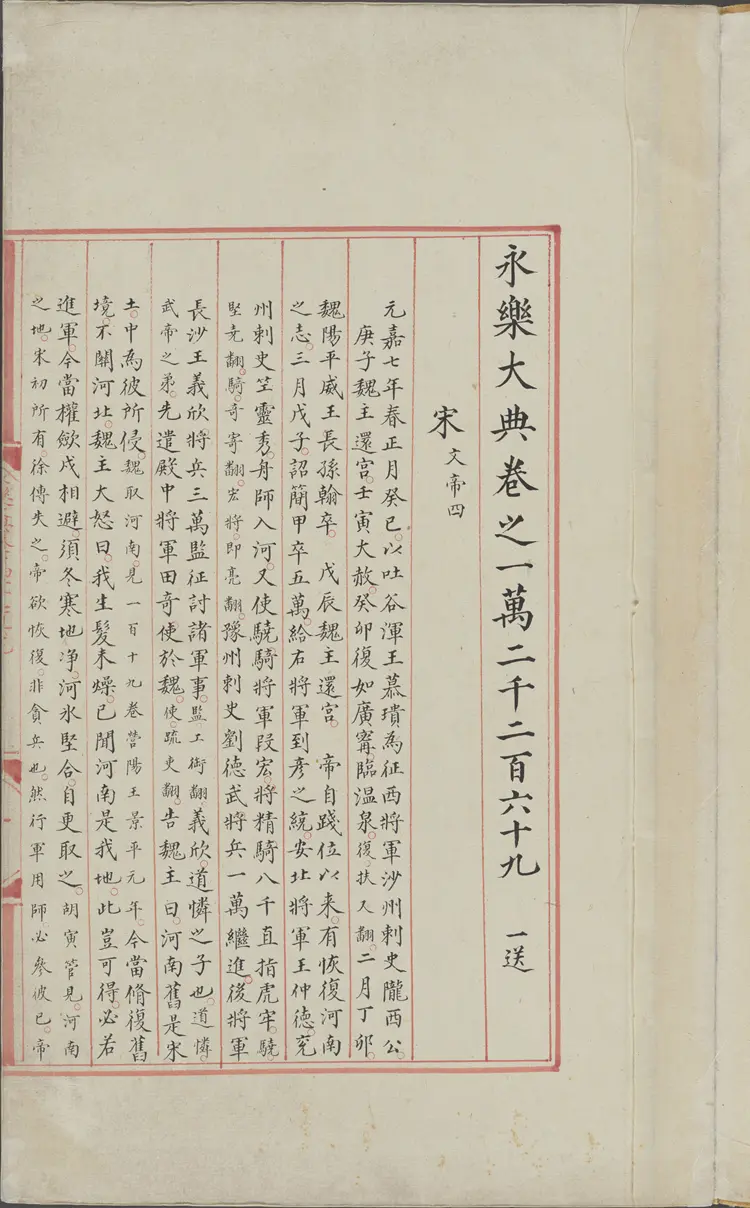 永樂大典卷之一萬二千二百六十九 一送
宋文帝四
元嘉七年春正月癸巳以吐谷渾王慕璝為征西將軍沙州刺史隴西公
庚子魏主還宮壬寅大赦癸卯復如廣甯臨温泉復扶又翻二月丁卯
魏陽平威王長孫翰卒 戊辰魏主還宮 帝自踐位以来有恢復河南
之志三月戊子詔簡甲卒五萬給右將軍到彥之統安北將軍王仲德兖
州刺史笁靈秀舟師入河又使驍騎將軍段宏將精騎八千直指虎牢驍
堅尭翻騎奇寄翻宏將即亮翻豫州刺史劉德武將兵一萬繼進後將軍
長沙王義欣將兵三萬監征討諸軍事監工銜翻義欣道憐之子也道憐
武帝之弟先遣殿中將軍田奇使於魏使疏吏翻告魏主曰河南舊是宋
土中為彼所侵魏取河南見一百十九卷營陽王景平元年今當脩復舊
境不關河北魏主大怒曰我生髮未燥已聞河南是我地此豈可得必若
進軍今當權斂戍相避須冬寒地净河氷堅合自更取之胡寅管見河南
之地宋初所有徐傅失之帝欲恢復非貪兵也然行軍用師必參彼已帝